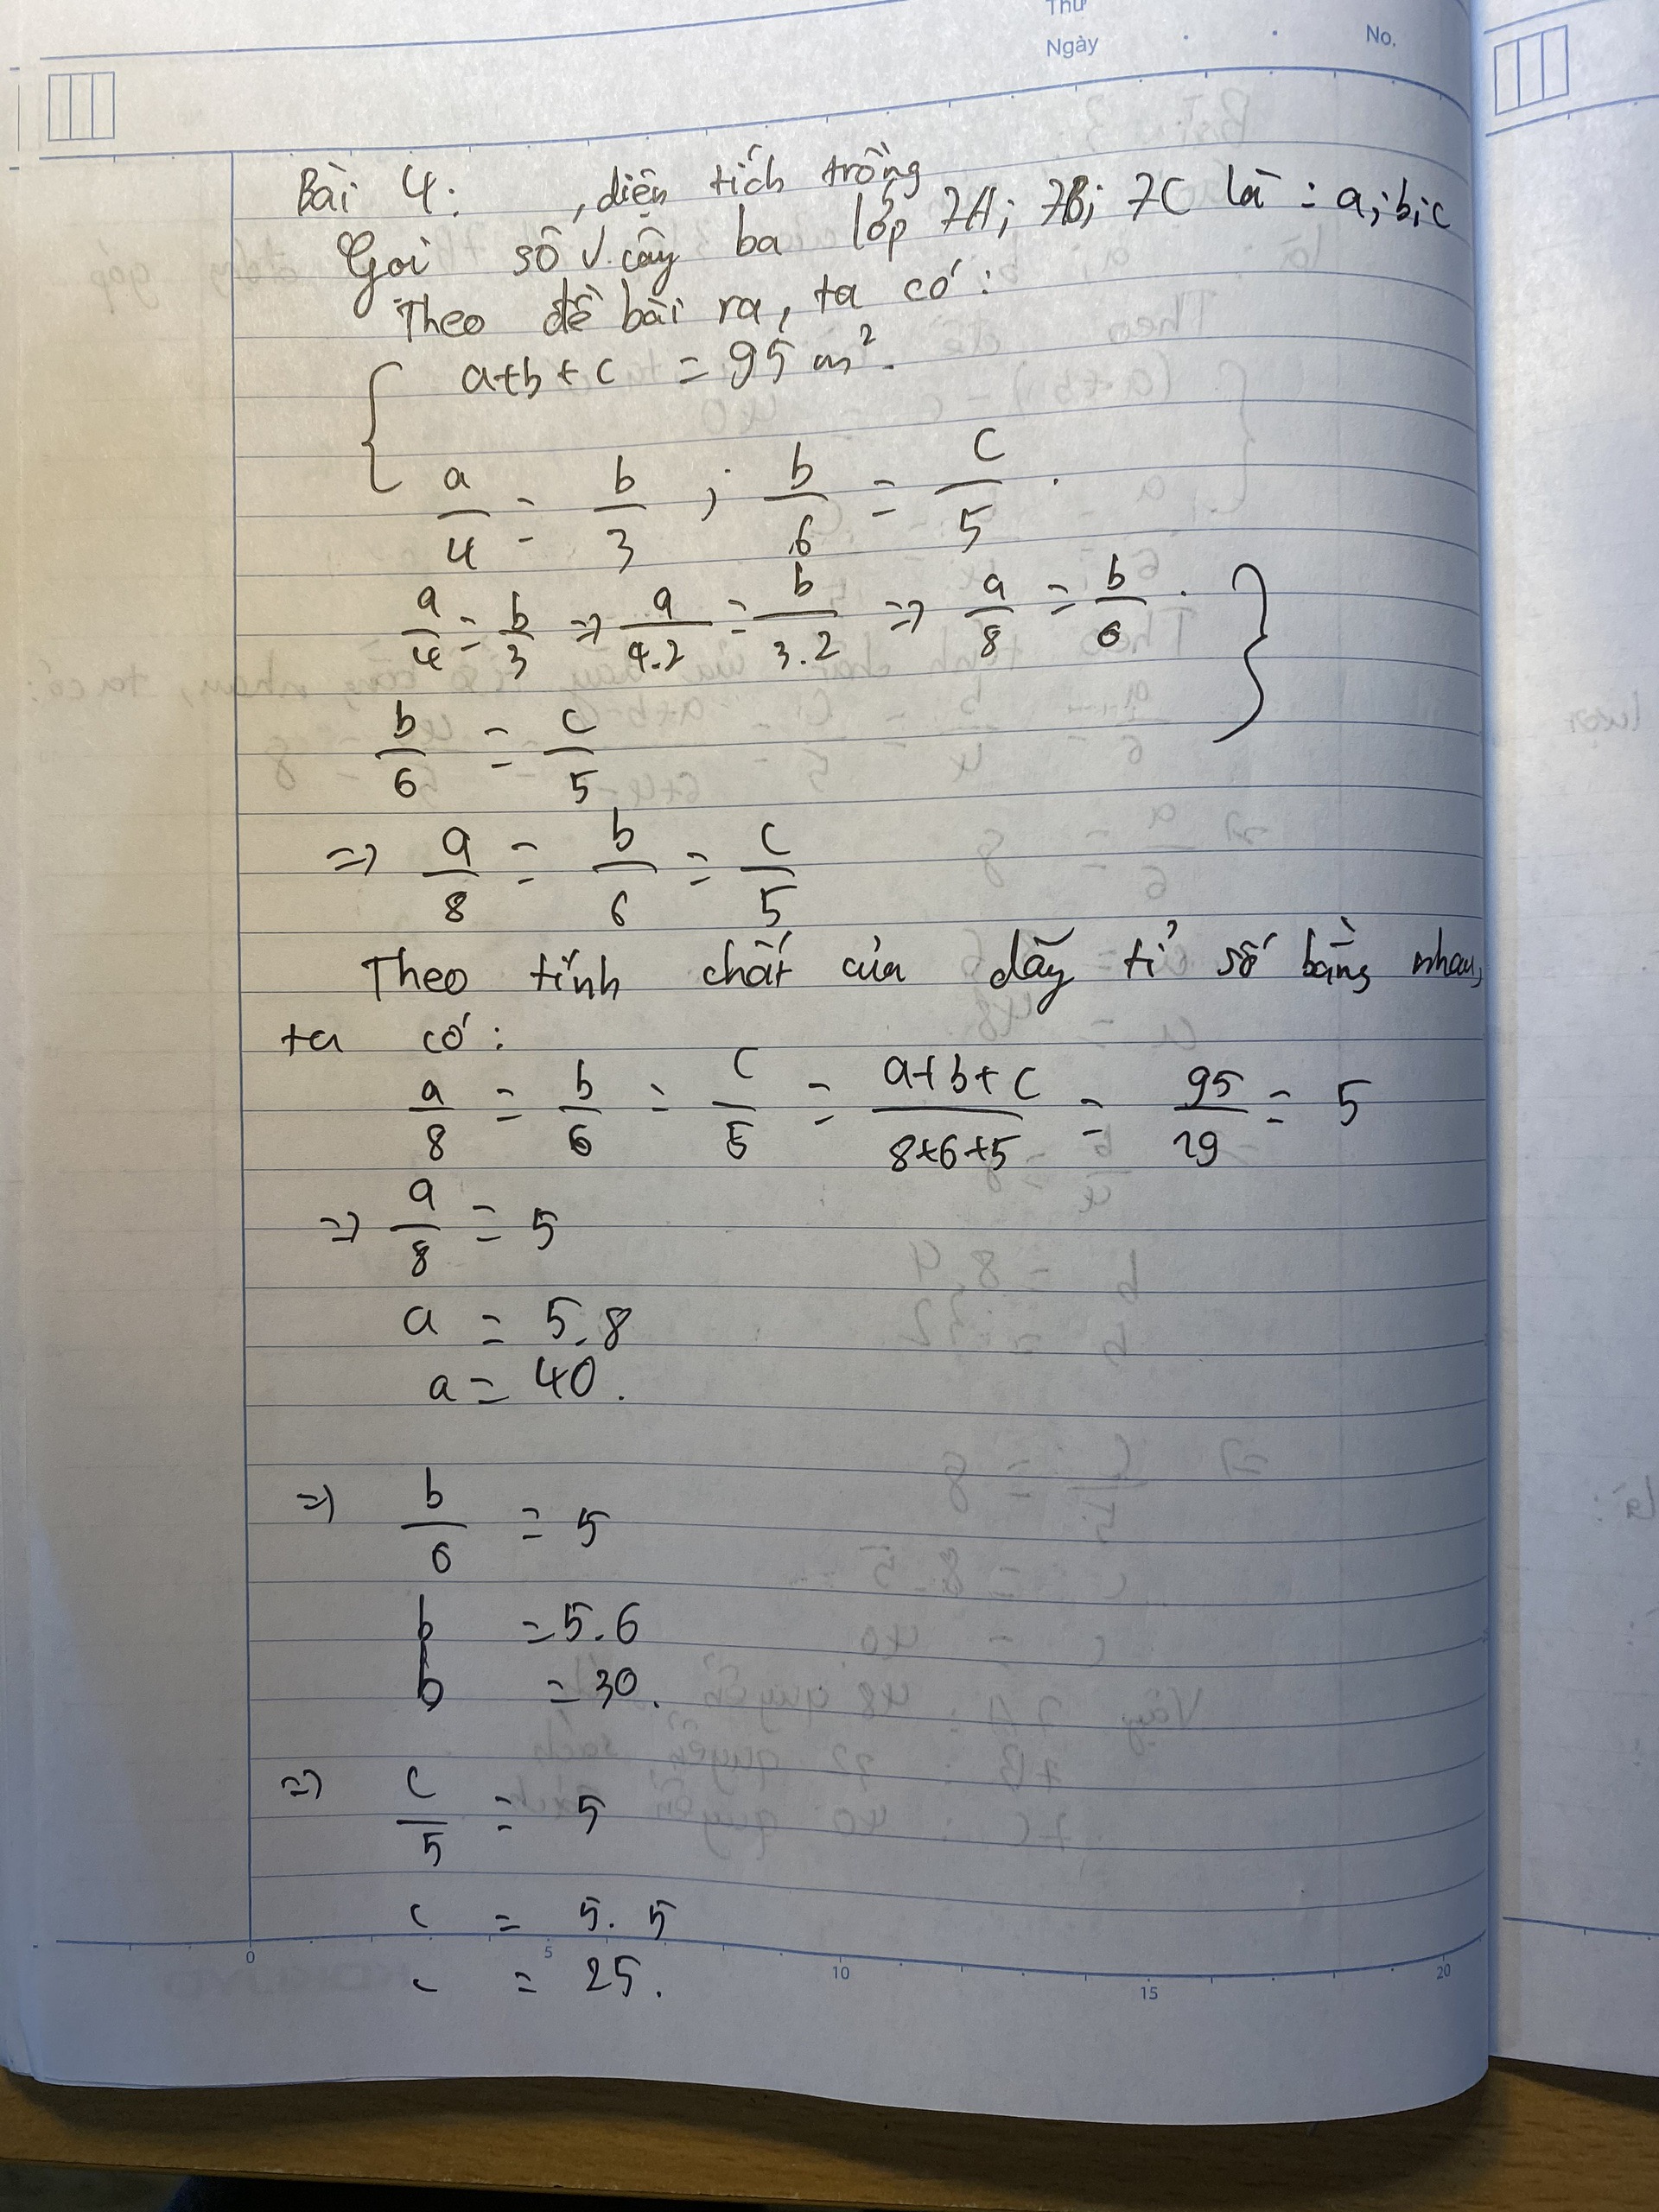 Thứ
Ngày
No.
Bài 4:
, diện tích trồng
Gọi số √ cây ba lớp 7A; 7B; 7C là : a; b; c
Theo đề bài ra, ta có:
{ a+b+c = 95 m².
a/4 = b/3 ; b/6 = c/5 .
a/4 = b/3 => a/4.2 = b/3.2 => a/8 = b/6 . }
b/6 = c/5
=> a/8 = b/6 = c/5
Theo tính chất của dãy tỉ số bằng nhau,
ta có:
a/8 = b/6 = c/5 = a+b+c/8+6+5 = 95/19 = 5
=> a/8 = 5
a = 5.8
a = 40.
=> b/6 = 5
b = 5.6
b = 30.
=> c/5 = 5
c = 5.5
c = 25.
0 5 10 15 20